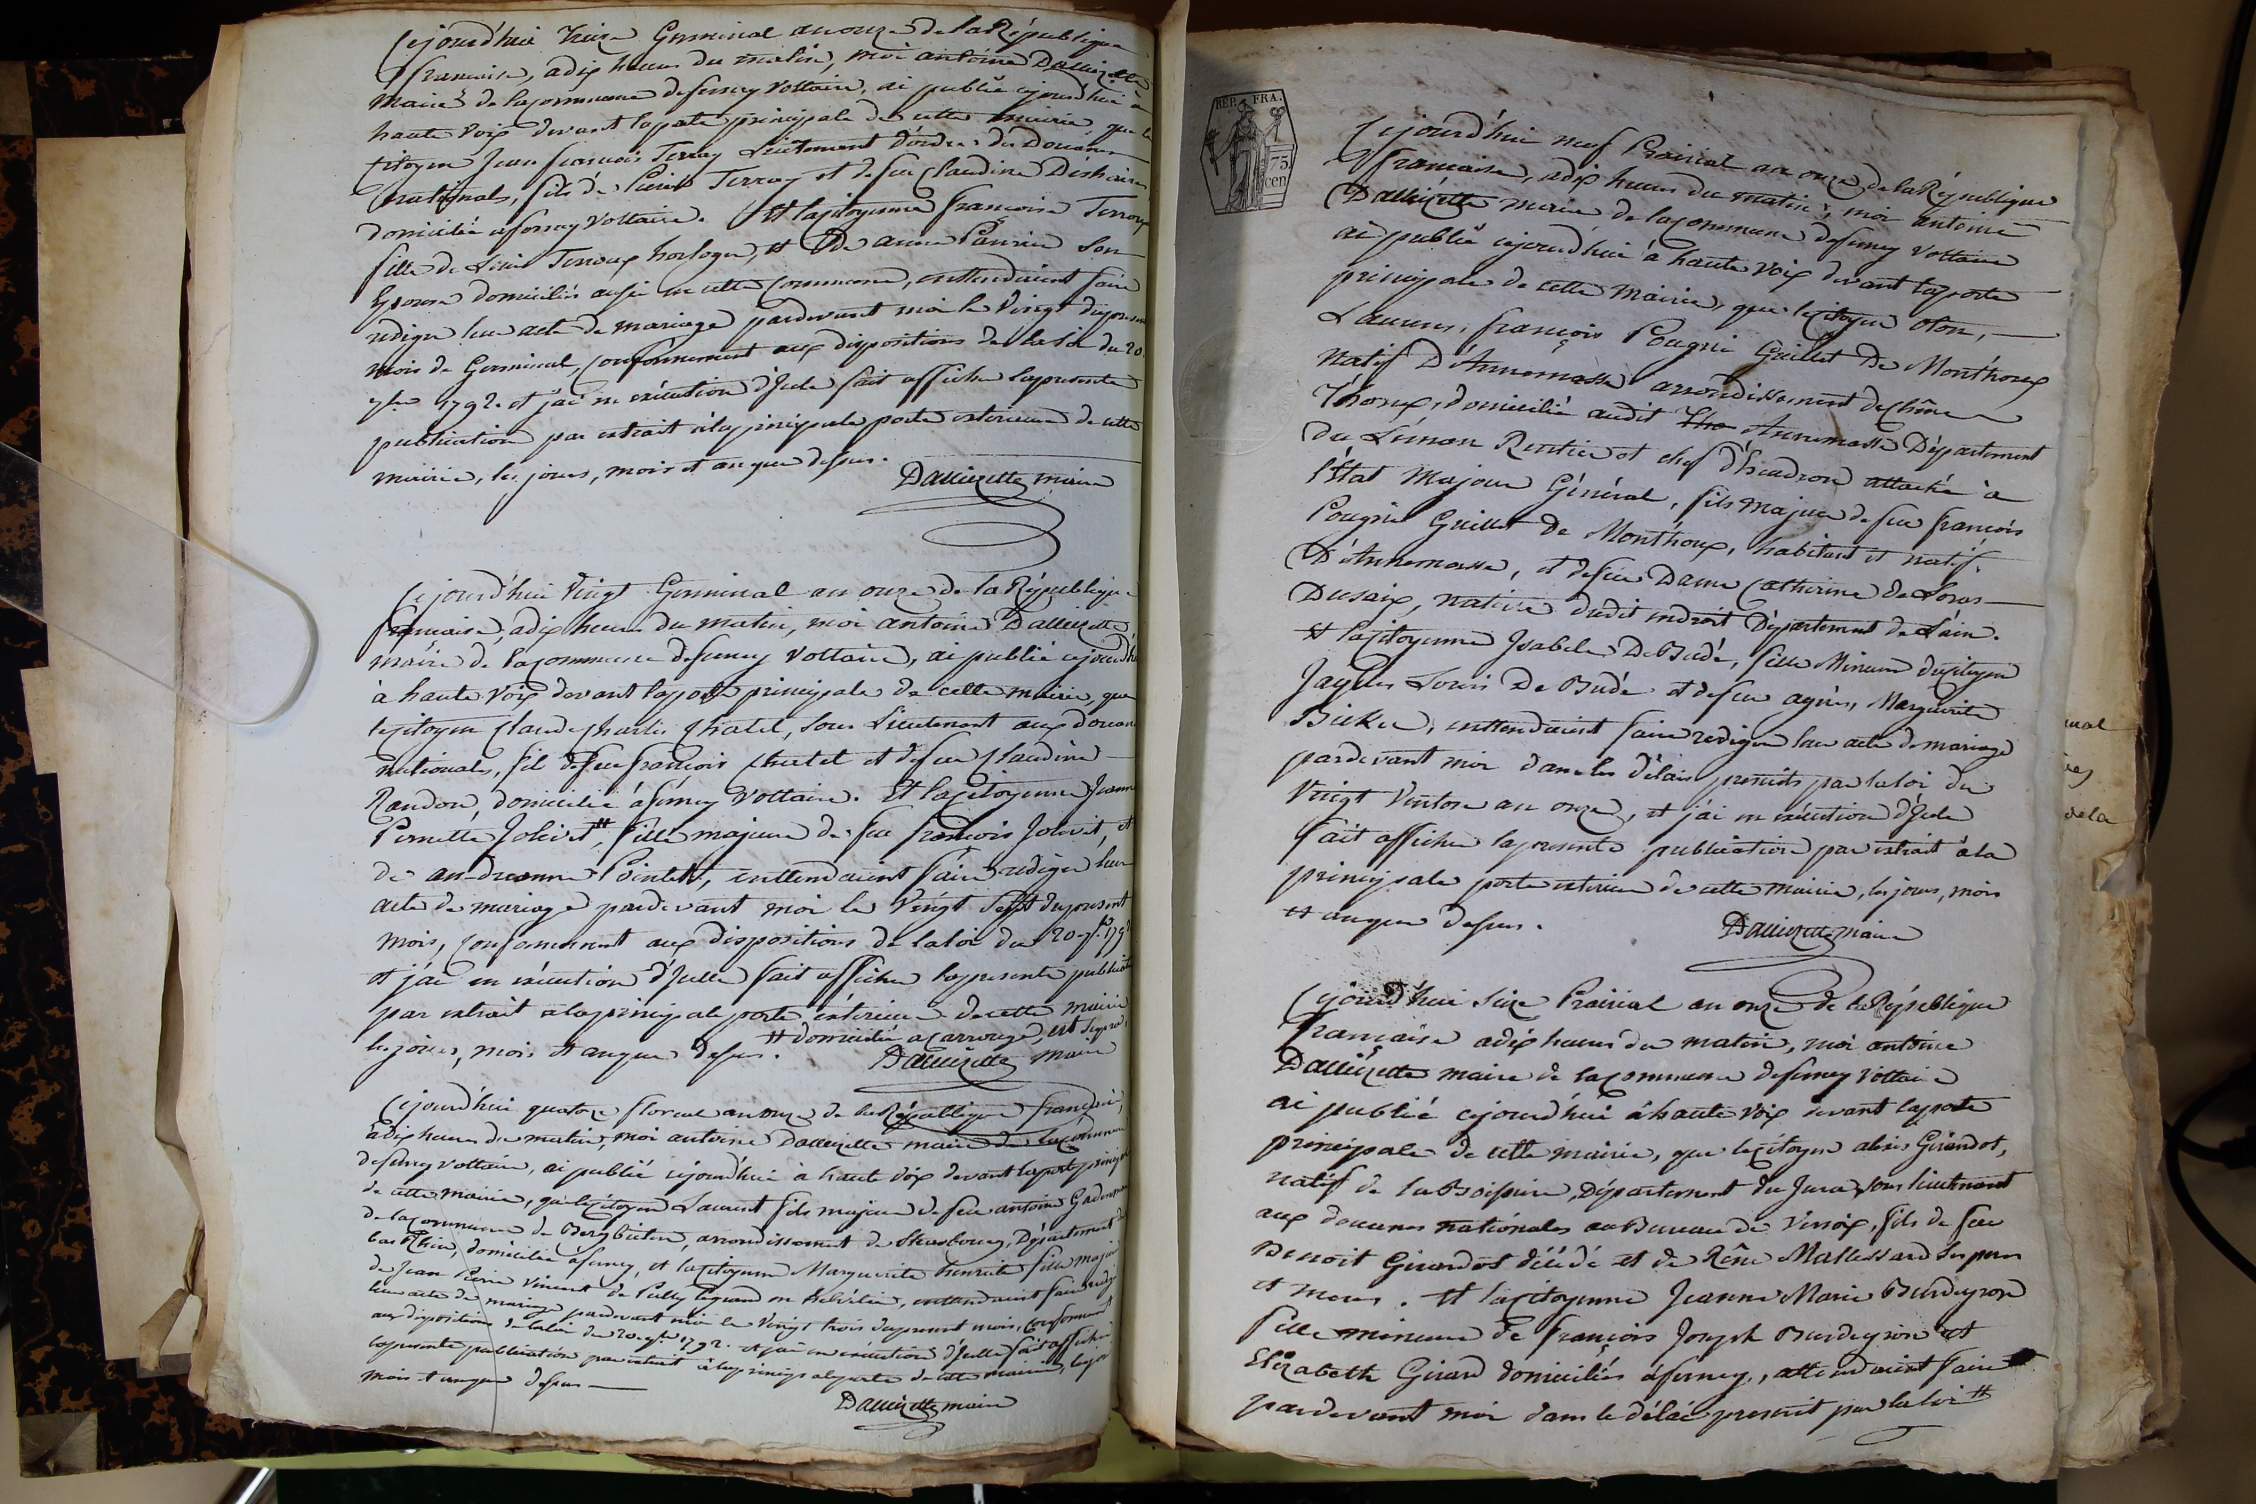 Cejourd'hui treize Germinal an onze de la République
française, à dix heures du matin, moi antoine Dallizette
Maire de la commune de ferney Voltaire, ai publié cejourd'hui à
haute voix devant la porte principale de cette mairie, que le
Citoyen Jean françois Terray Lieutenant d'ordre des Douanes
nationales, fils de Pierre Terray et de feu Claudine
domicilié à ferney Voltaire. Et la citoyenne françoise Terroux
fille de Louis Terroux horloger, et De anne Panrier Son
Epouse domiciliés aussi en cette Commune, entendaient faire
rediger leur acte de mariage pardevant moi le Vingt du présent
mois de Germinal, conformement aux dispositions de la loi du 20
7bre 1792. et j'ai en exécution d'Icelle fait afficher la présente
publication par extrait à la principale porte exterieure de cette
mairie, les jours, mois et an que dessus.
Dallizette maire
Cejourd'hui Vingt Germinal an onze de la République
française, à dix heures du matin, moi antoine Dallizette
maire de la commune de ferney Voltaire, ai publié cejourd'hui
à haute voix devant la porte principale de cette mairie, que
le citoyen Claude Charles Chatel, Sous Lieutenant aux douanes
nationales, fil de feu françois Chatel et de feu Claudine
Randon, domicilié à ferney Voltaire. Et la citoyenne Jeanne
Pernette Jolivet #, fille majeure de feu françois Jolivet, et
de andreanne Pointet, entendaient faire rediger leur
acte de mariage pardevant moi le Vingt Sept du présent
mois, conformement aux dispositions de la loi du 20 7bre 1792
et j'ai en exécution d'Icelle fait afficher la présente publication
par extrait à la principale porte extérieure de cette mairie
les jours, mois et an que dessus. # domiciliée à Carrouge, est
Dallizette maire
Cejourd'hui quatorze floreal an onze de la République française,
à dix heures du matin, moi antoine Dallizette maire de la commune
de ferney voltaire, ai publié cejourd'hui à haute voix devant la porte principale
de cette mairie, que le citoyen Laurent fils majeur de feu antoine
de la commune de Bergbieten, arrondissement de Strasbourg, Département du
bas Rhin, domicilié à ferney, et la citoyenne Marguerite henriete fille majeure
de Jean Pierre Vincent de Pully en helvétie, entendaient faire rediger
leur acte de mariage pardevant moi le Vingt trois du présent mois, conformement
aux dispositions de la loi du 20 7bre 1792. et j'ai en exécution d'Icelle fait afficher
la présente publication par extrait à la principale porte de cette mairie, les jours
mois et an que dessus
Dallizette maire
REP. FRA.
75 cen
Cejourd'hui neuf Prairial an onze de la République
française, à dix heures du matin, moi antoine
Dallizette maire de la commune de ferney Voltaire
ai publié cejourd'hui à haute voix devant la porte
principale de cette Mairie, que le citoyen
Laurens, françois Pougni Guillet De Monthoux
Natif D'Annemasse arrondissement de Chêne
Thonex, domicilié audit Annemasse Département
du Léman Rentier et chef d'Escadron attaché à
l'Etat Majour Général, fils Majeur de feu françois
Pougni Guillet De Monthoux, habitant et natif
D'Annemasse, et de feu Dame Catherine de
Dusaix, native dudit endroit Département de L'ain.
et la citoyenne Isabele De Budé, fille Mineure du citoyen
Jaques Louis De Budé et de feu agnès, Marguerite
entendaient faire rediger leur acte de mariage
pardevant moi dans les délais prescrits par la loi du
Vingt Ventose an onze, et j'ai en exécution d'Icelle
fait afficher la présente publication par extrait à la
principale porte exterieure de cette mairie, les jours, mois
et an que dessus.
Dallizette maire
Cejourd'hui seize Prairial an onze de la République
française à dix heures du matin, moi antoine
Dallizette maire de la commune de ferney Voltaire
ai publié cejourd'hui à haute voix devant la porte
principale de cette mairie, que le citoyen alexis Girardot,
natif de la Boissière, Département du Jura sous lieutenant
aux douanes nationales au Bureau de Versoix, fils de feu
Benoit Girardot décédé et de Rène Mallessard Ses pere
et mere. et la citoyenne Jeanne Marie Burdeyron
fille mineure de françois Joseph Burdeyron et
Elizabeth Girard domiciliés à ferney, attendaient faire
pardevant moi dans le délai prescrit par la loi #